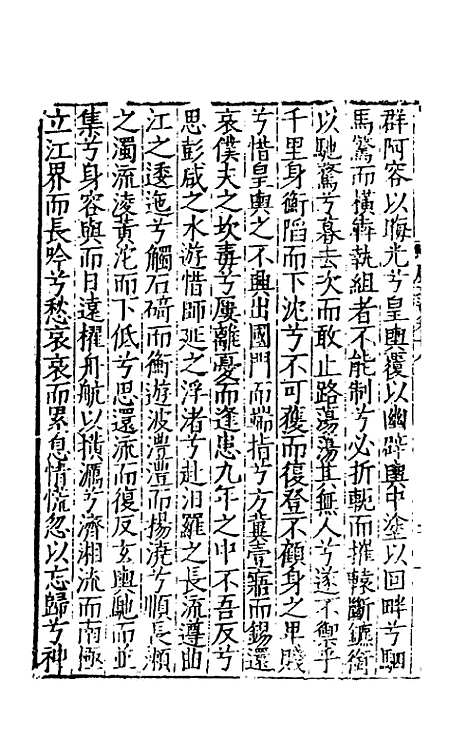 群阿容以晦光兮皇輿覆以幽辟輿中塗以回畔兮駟
馬驚而橫犇執組者不能制兮必折軛而摧轅斷鑣銜
以馳騖兮暮去次而敢止路蕩蕩其無人兮遂不禦乎
千里身衡陷而下沈兮不可獲而復登不顧身之卑賤
兮惜皇輿之不興出國門而端指兮方冀壹寤而錫還
哀僕夫之坎毒兮屢離憂而逢患九年之中不吾反兮
思彭咸之水遊惜師延之浮渚兮赴汨羅之長流遵曲
江之逶迤兮觸石碕而衡遊波澧澧而揚澆兮順長瀨
之濁流淩黃沱而下低兮思還流而復反玄輿馳而並
集兮身容與而日遠櫂舟航以橫濿兮濟湘流而南極
立江界而長吟兮愁哀哀而累息情慌忽以忘歸兮神